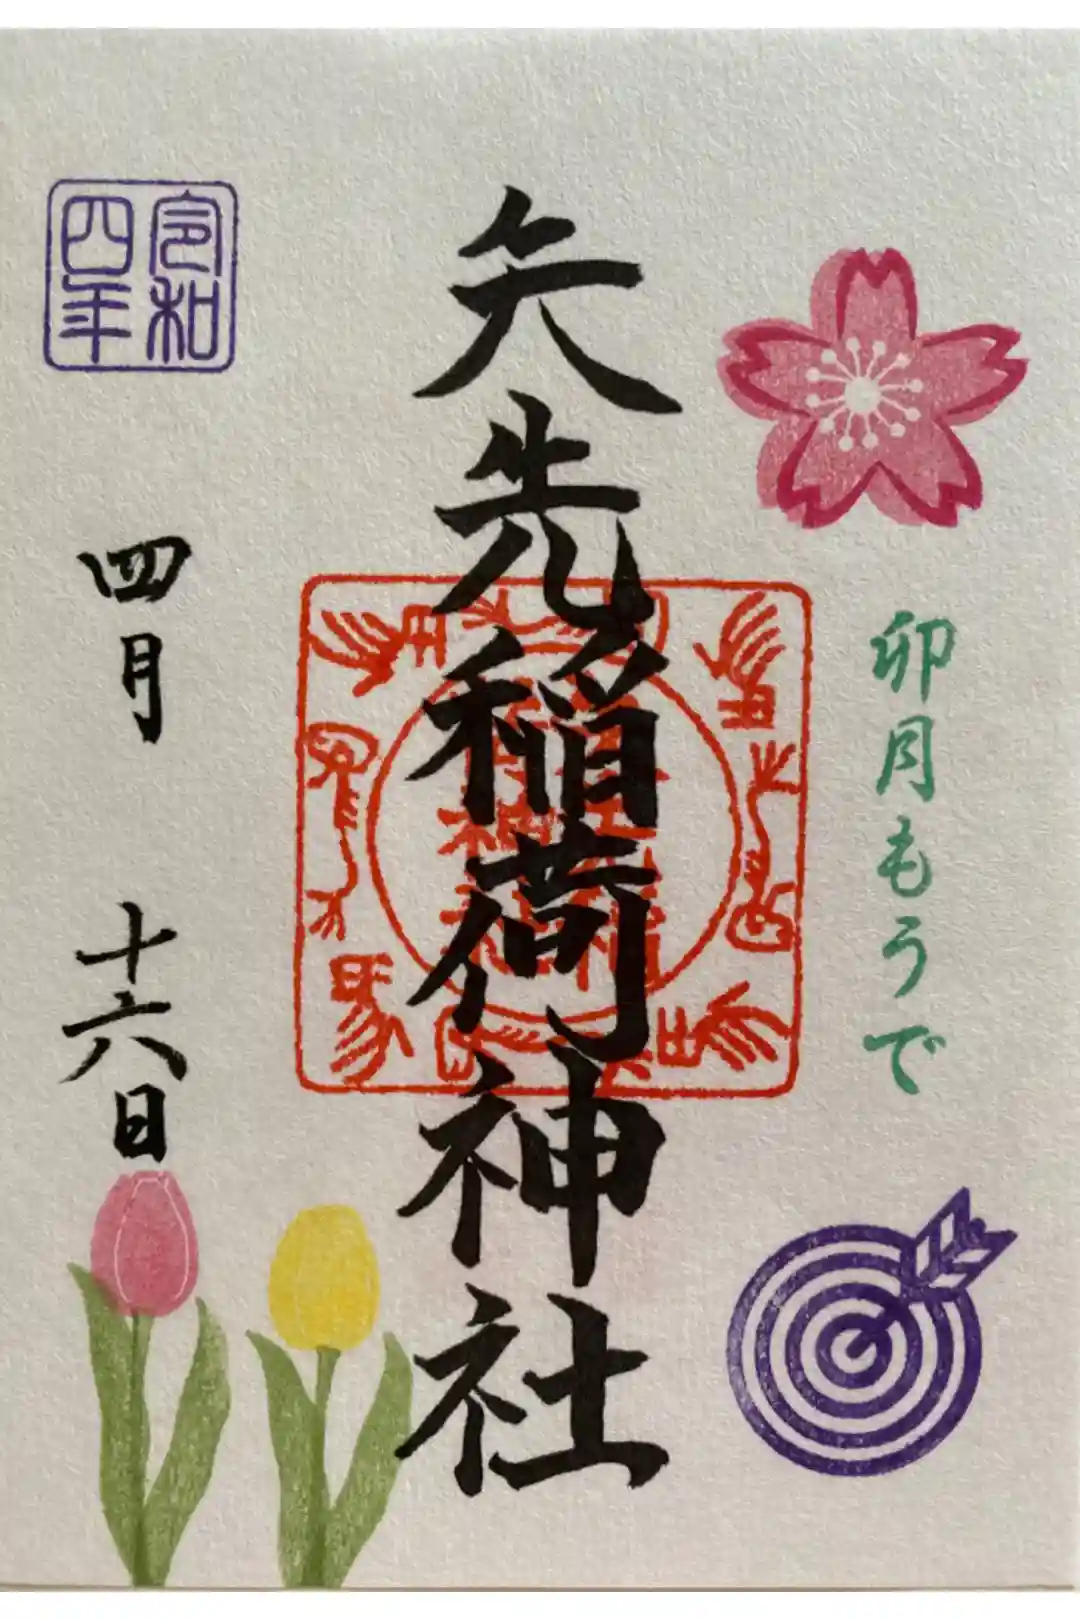 卯月もうで
矢先稲荷神社
令和
四年
四月 十六日